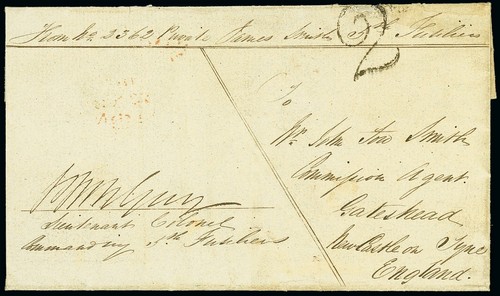 From No 2362 Private James Smith 5th Fusiliers
2
To
Mr John Smith
Commission Agent.
Gateshead
New Castle on Tyne
England.
Lieutenant Colonel
Commanding 5th Fusiliers